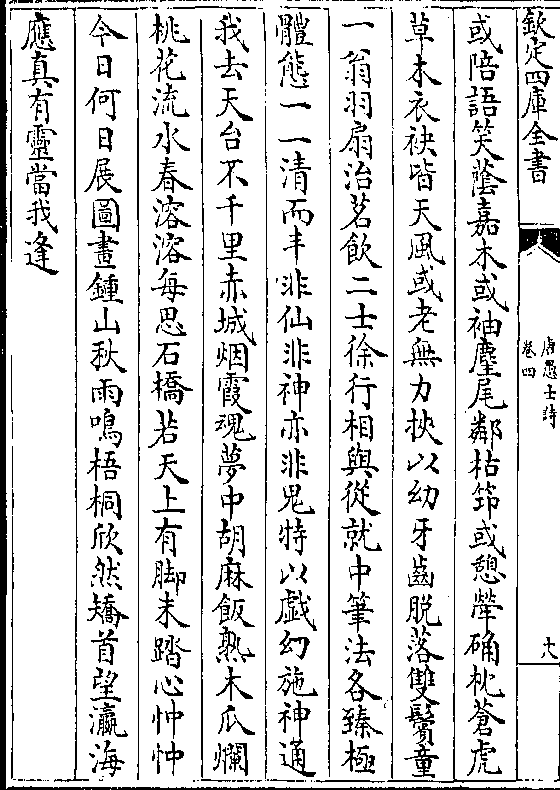 欽定四庫全書
唐愚士詩
卷四
十八
或陪語笑蔭嘉木或袖麈尾鄰枯筇或憩犖确枕蒼虎
草木衣袂皆天風或老無力挾以幼牙齒脱落雙鬢童
一翁羽扇治茗飲二士徐行相與從就中筆法各臻極
體態一一清而丰非仙非神亦非鬼特以戲幻施神通
我去天台不千里赤城烟霞魂夢中胡麻飯熟木瓜爛
桃花流水春溶溶每思石橋若天上有脚未踏心忡忡
今日何日展圖畫鍾山秋雨鳴梧桐欣然矯首望瀛海
應真有靈當我逢